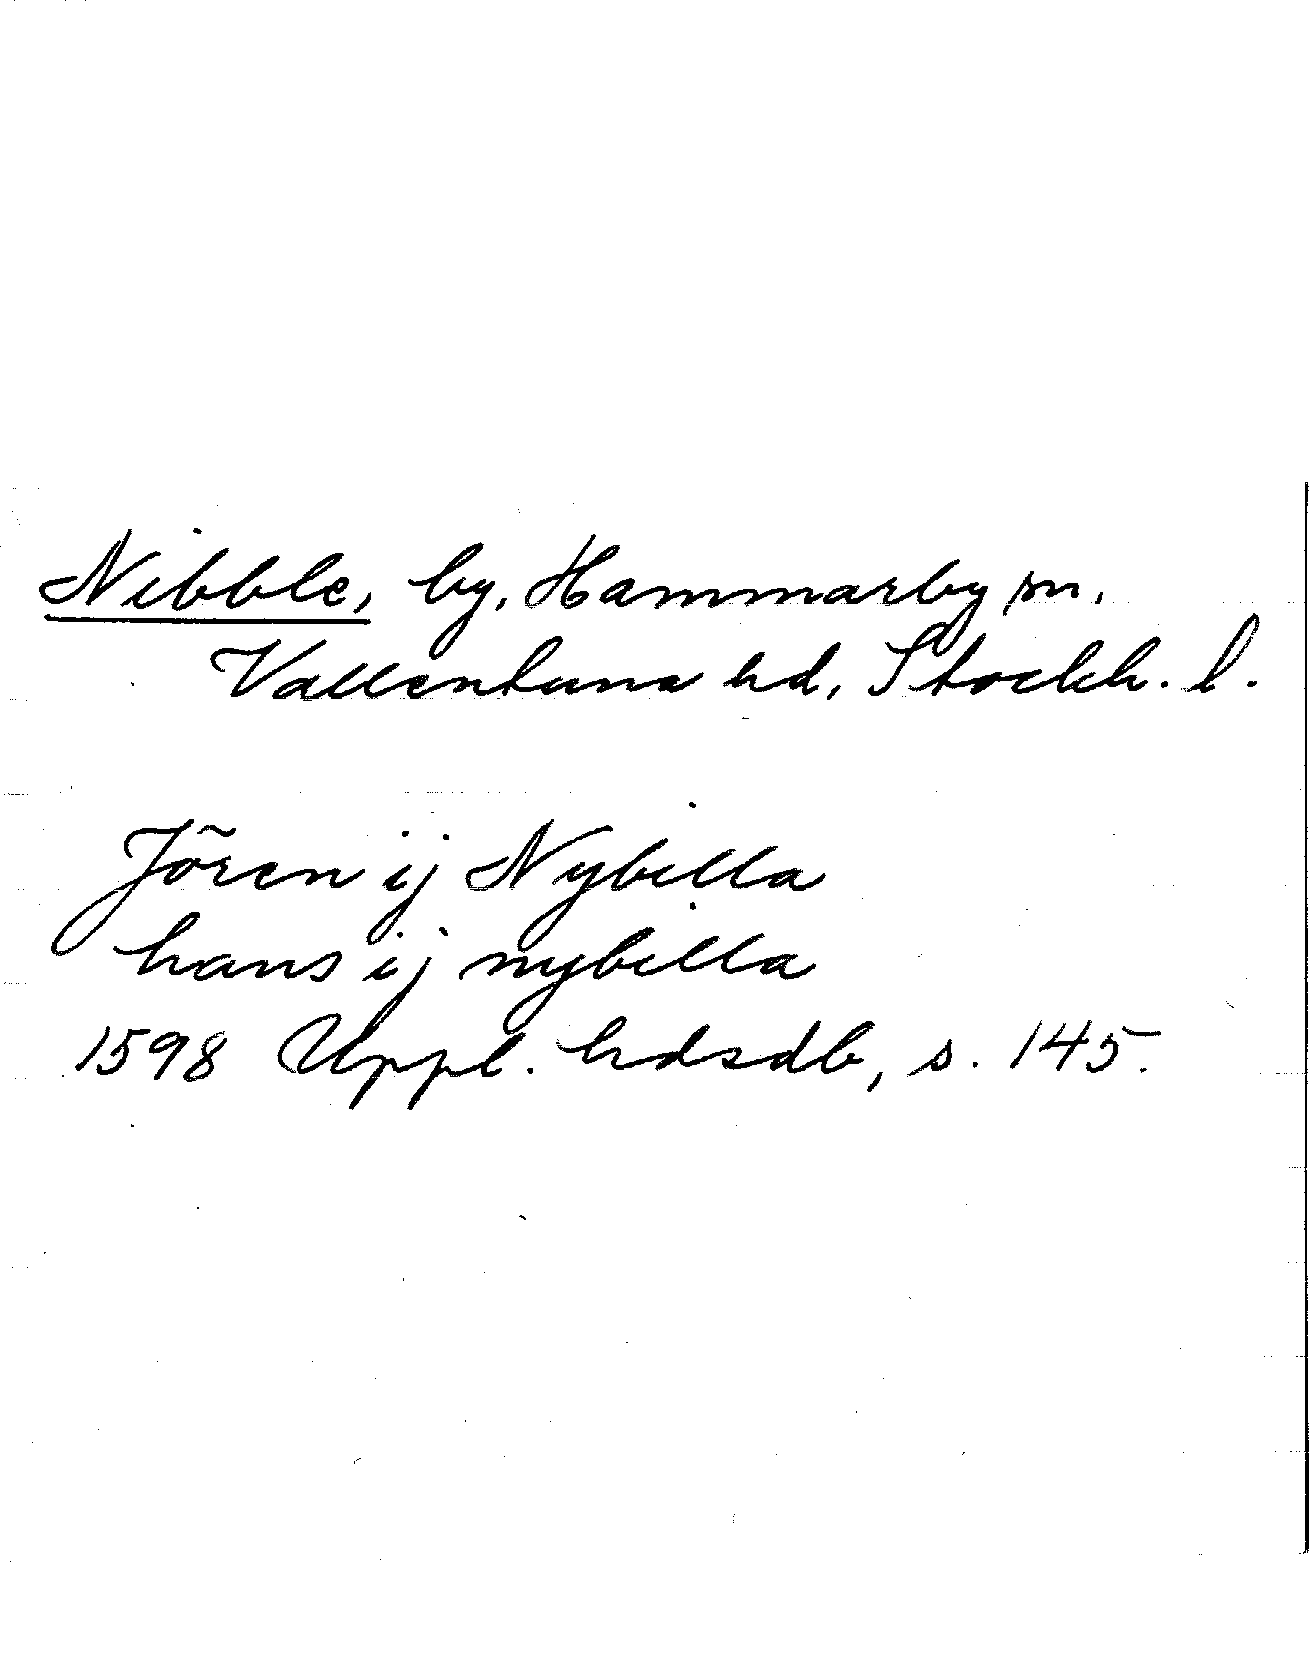 Nibble, by, Hammarby sn,
Vallentuna hd, Stockh. l.
Jören ij Nybilla
hans ij nybilla
1598 Uppl. hdsdb, s. 145.